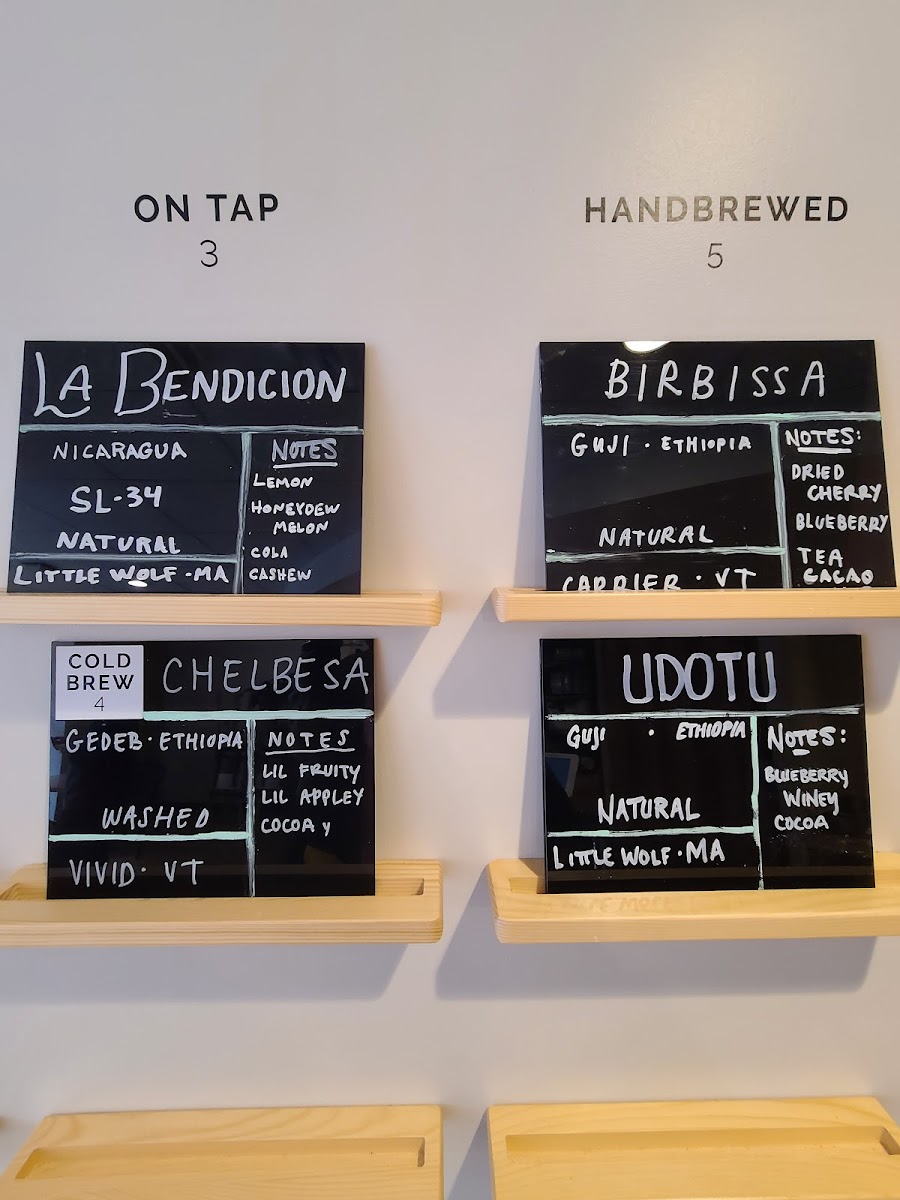 ON TAP
3
LA BENDICION
NICARAGUA
SL-34
NATURAL
LITTLE WOLF · MA
NOTES
LEMON
HONEYDEW
MELON
COLA
CASHEW
COLD
BREW
4
CHELBESA
GEDEB · ETHIOPIA
WASHED
VIVID · VT
NOTES
LIL FRUITY
LIL APPLEY
COCOA y
HANDBREWED
5
BIRBISSA
GUJI · ETHIOPIA
NATURAL
CARRIER · VT
NOTES:
DRIED
CHERRY
BLUEBERRY
TEA
CACAO
UDOTU
GUJI · ETHIOPIA
NATURAL
LITTLE WOLF · MA
NOTES:
BLUEBERRY
WINEY
COCOA